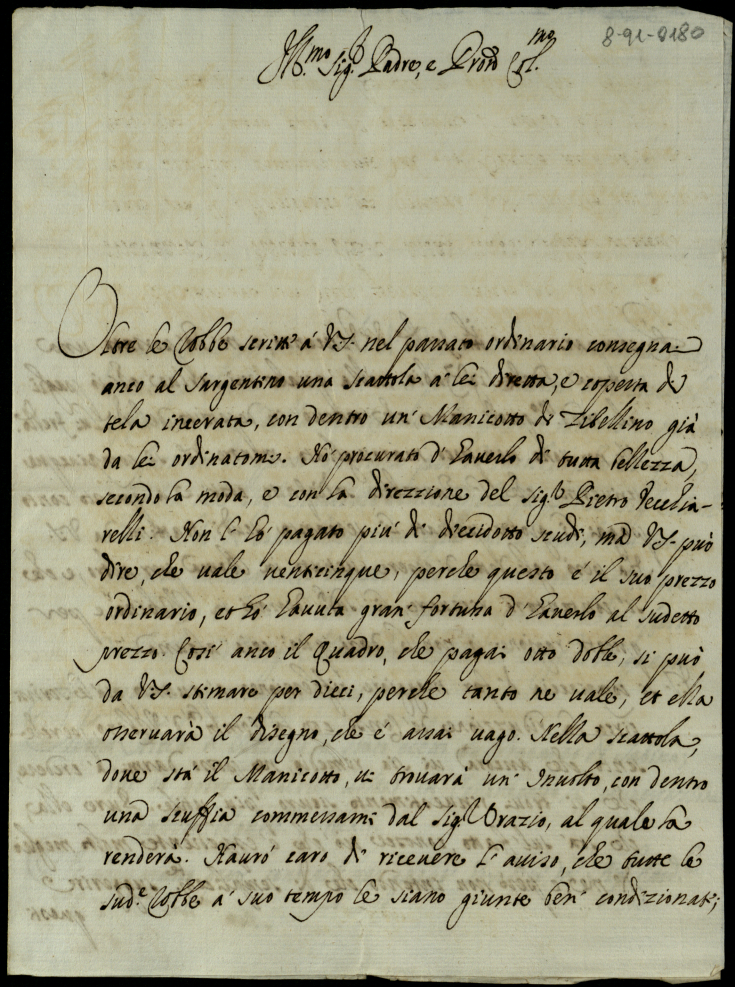 8-91-0180
Ill.mo Sig.r Padre, e Pron Col.mo
Oltre le Robbe scritte á VS. nel passato ordinario consegnai
anco al Sargentino una scattola á lei diretta, e coperta di
tela incerata, con dentro un' Manicotto di Zibellino già
da lei ordinatomi. Hò procurato d'haverlo di tutta bellezza,
secondo la moda, e con la direzzione del sig.r Pietro Vecchia-
relli. Non l' hó pagato piú di diecidotto scudi, mà VS. può
dire, che vale venticinque, perche questo é il suo prezzo
ordinario, et hó havuta gran' fortuna d'haverlo al sudetto
prezzo. Cosi' anco il Quadro, che pagai otto doble, si può
da VS. stimare per dieci, perche tanto ne vale, et ella
osservarà il disegno, che é assai vago. Nella scattola,
dove stá il Manicotto, vi trovarà un' Involto, con dentro
una scuffia commessami dal Sig.r Orazio, al quale la
renderà. Hauró caro di ricevere l'aviso, che tutte le
sud.e Robbe á suo tempo le siano giunte ben' condizionate;